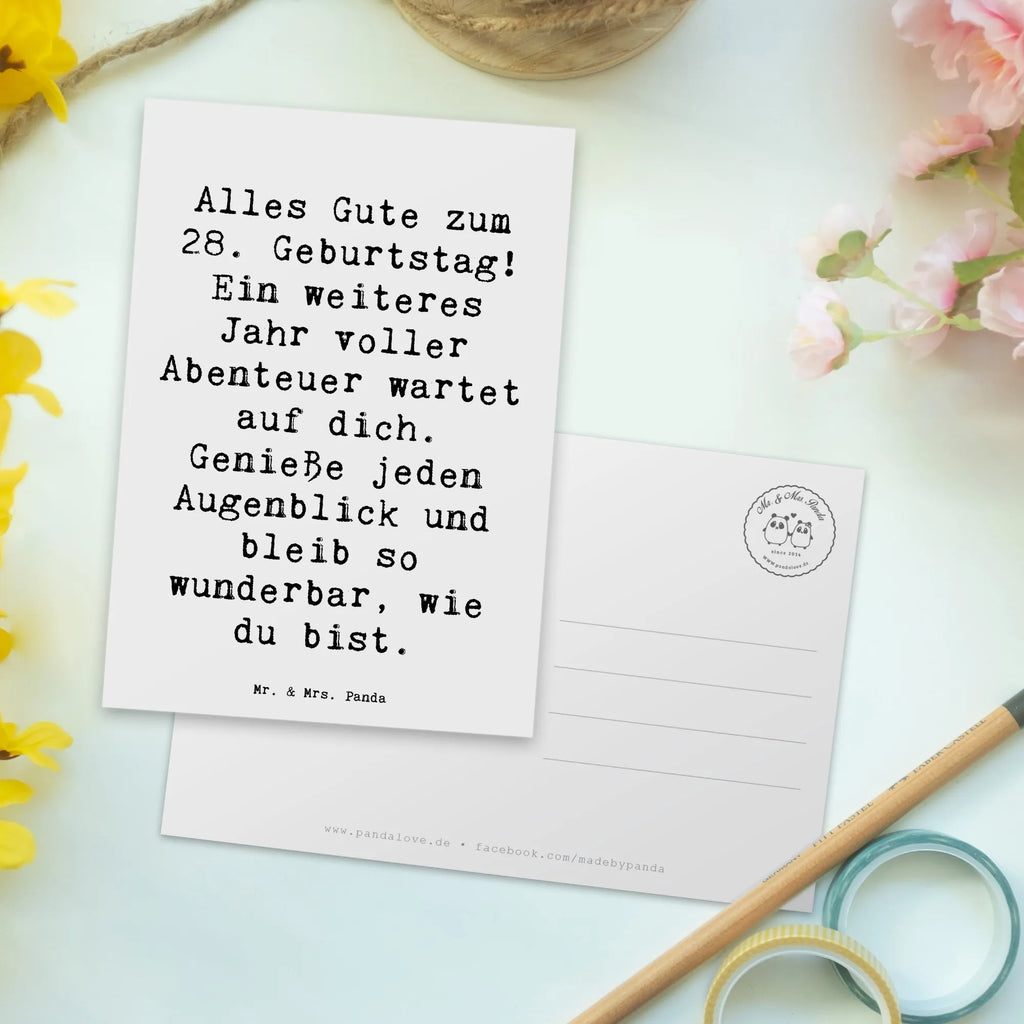 Alles Gute zum
28. Geburtstag!
Ein weiteres
Jahr voller
Abenteuer wartet
auf dich.
Genieße jeden
Augenblick und
bleib so
wunderbar, wie
du bist.
Mr. & Mrs. Panda
Mr. & Mrs. Panda
since 2014
www.pandalove.de
www.pandalove.de • facebook.com/madebypanda
PITT PASTEL FABER-CASTELL